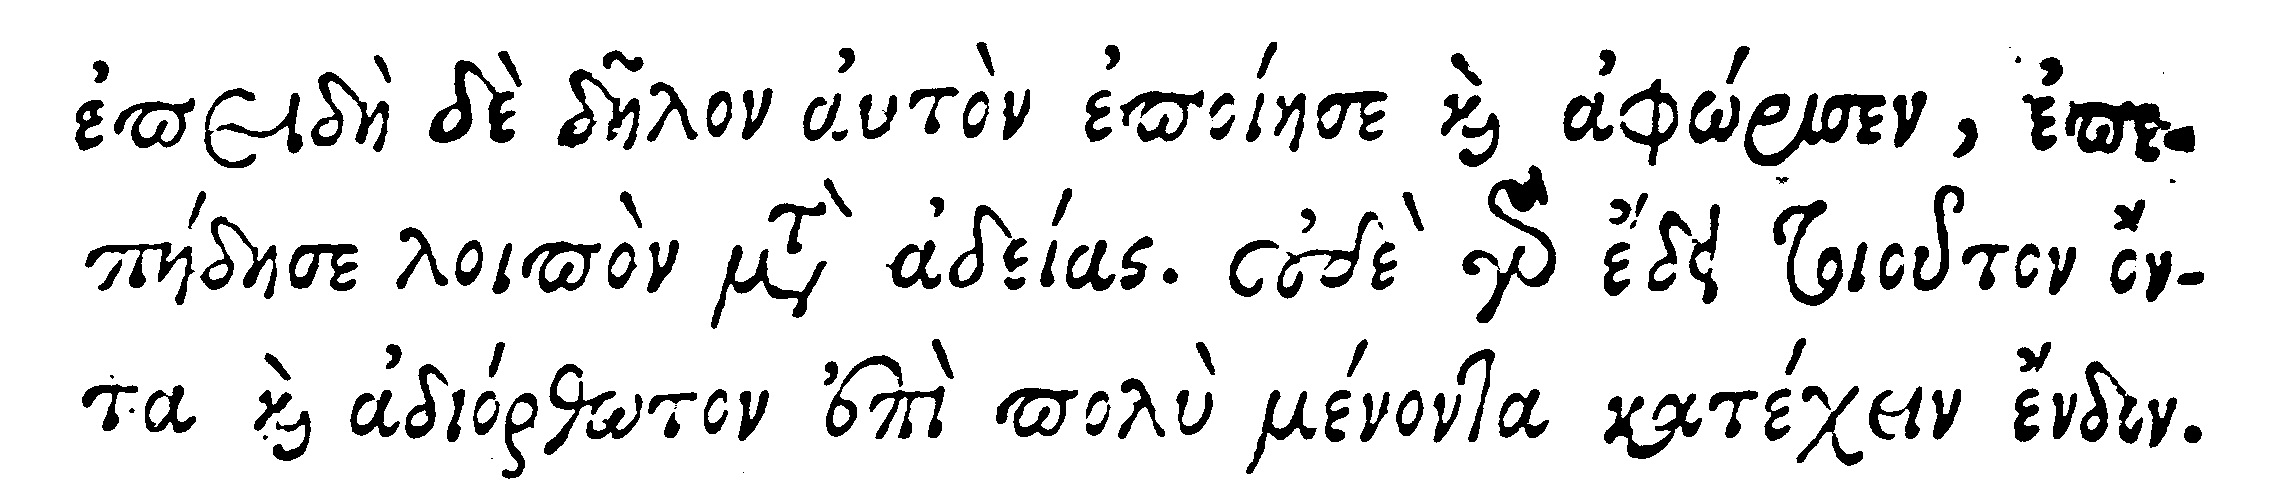 ἐπειδὴ δὲ δῆλον αὐτὸν ἐποίησε καὶ ἀφώρισεν, ἐπε-
πήδησε λοιπὸν μετὰ ἀδείας. οὐδὲ γὰρ ἔδει τοιοῦτον ὄν-
τα καὶ ἀδιόρθωτον ἐπὶ πολὺ μένοντα κατέχειν ἔνδον.